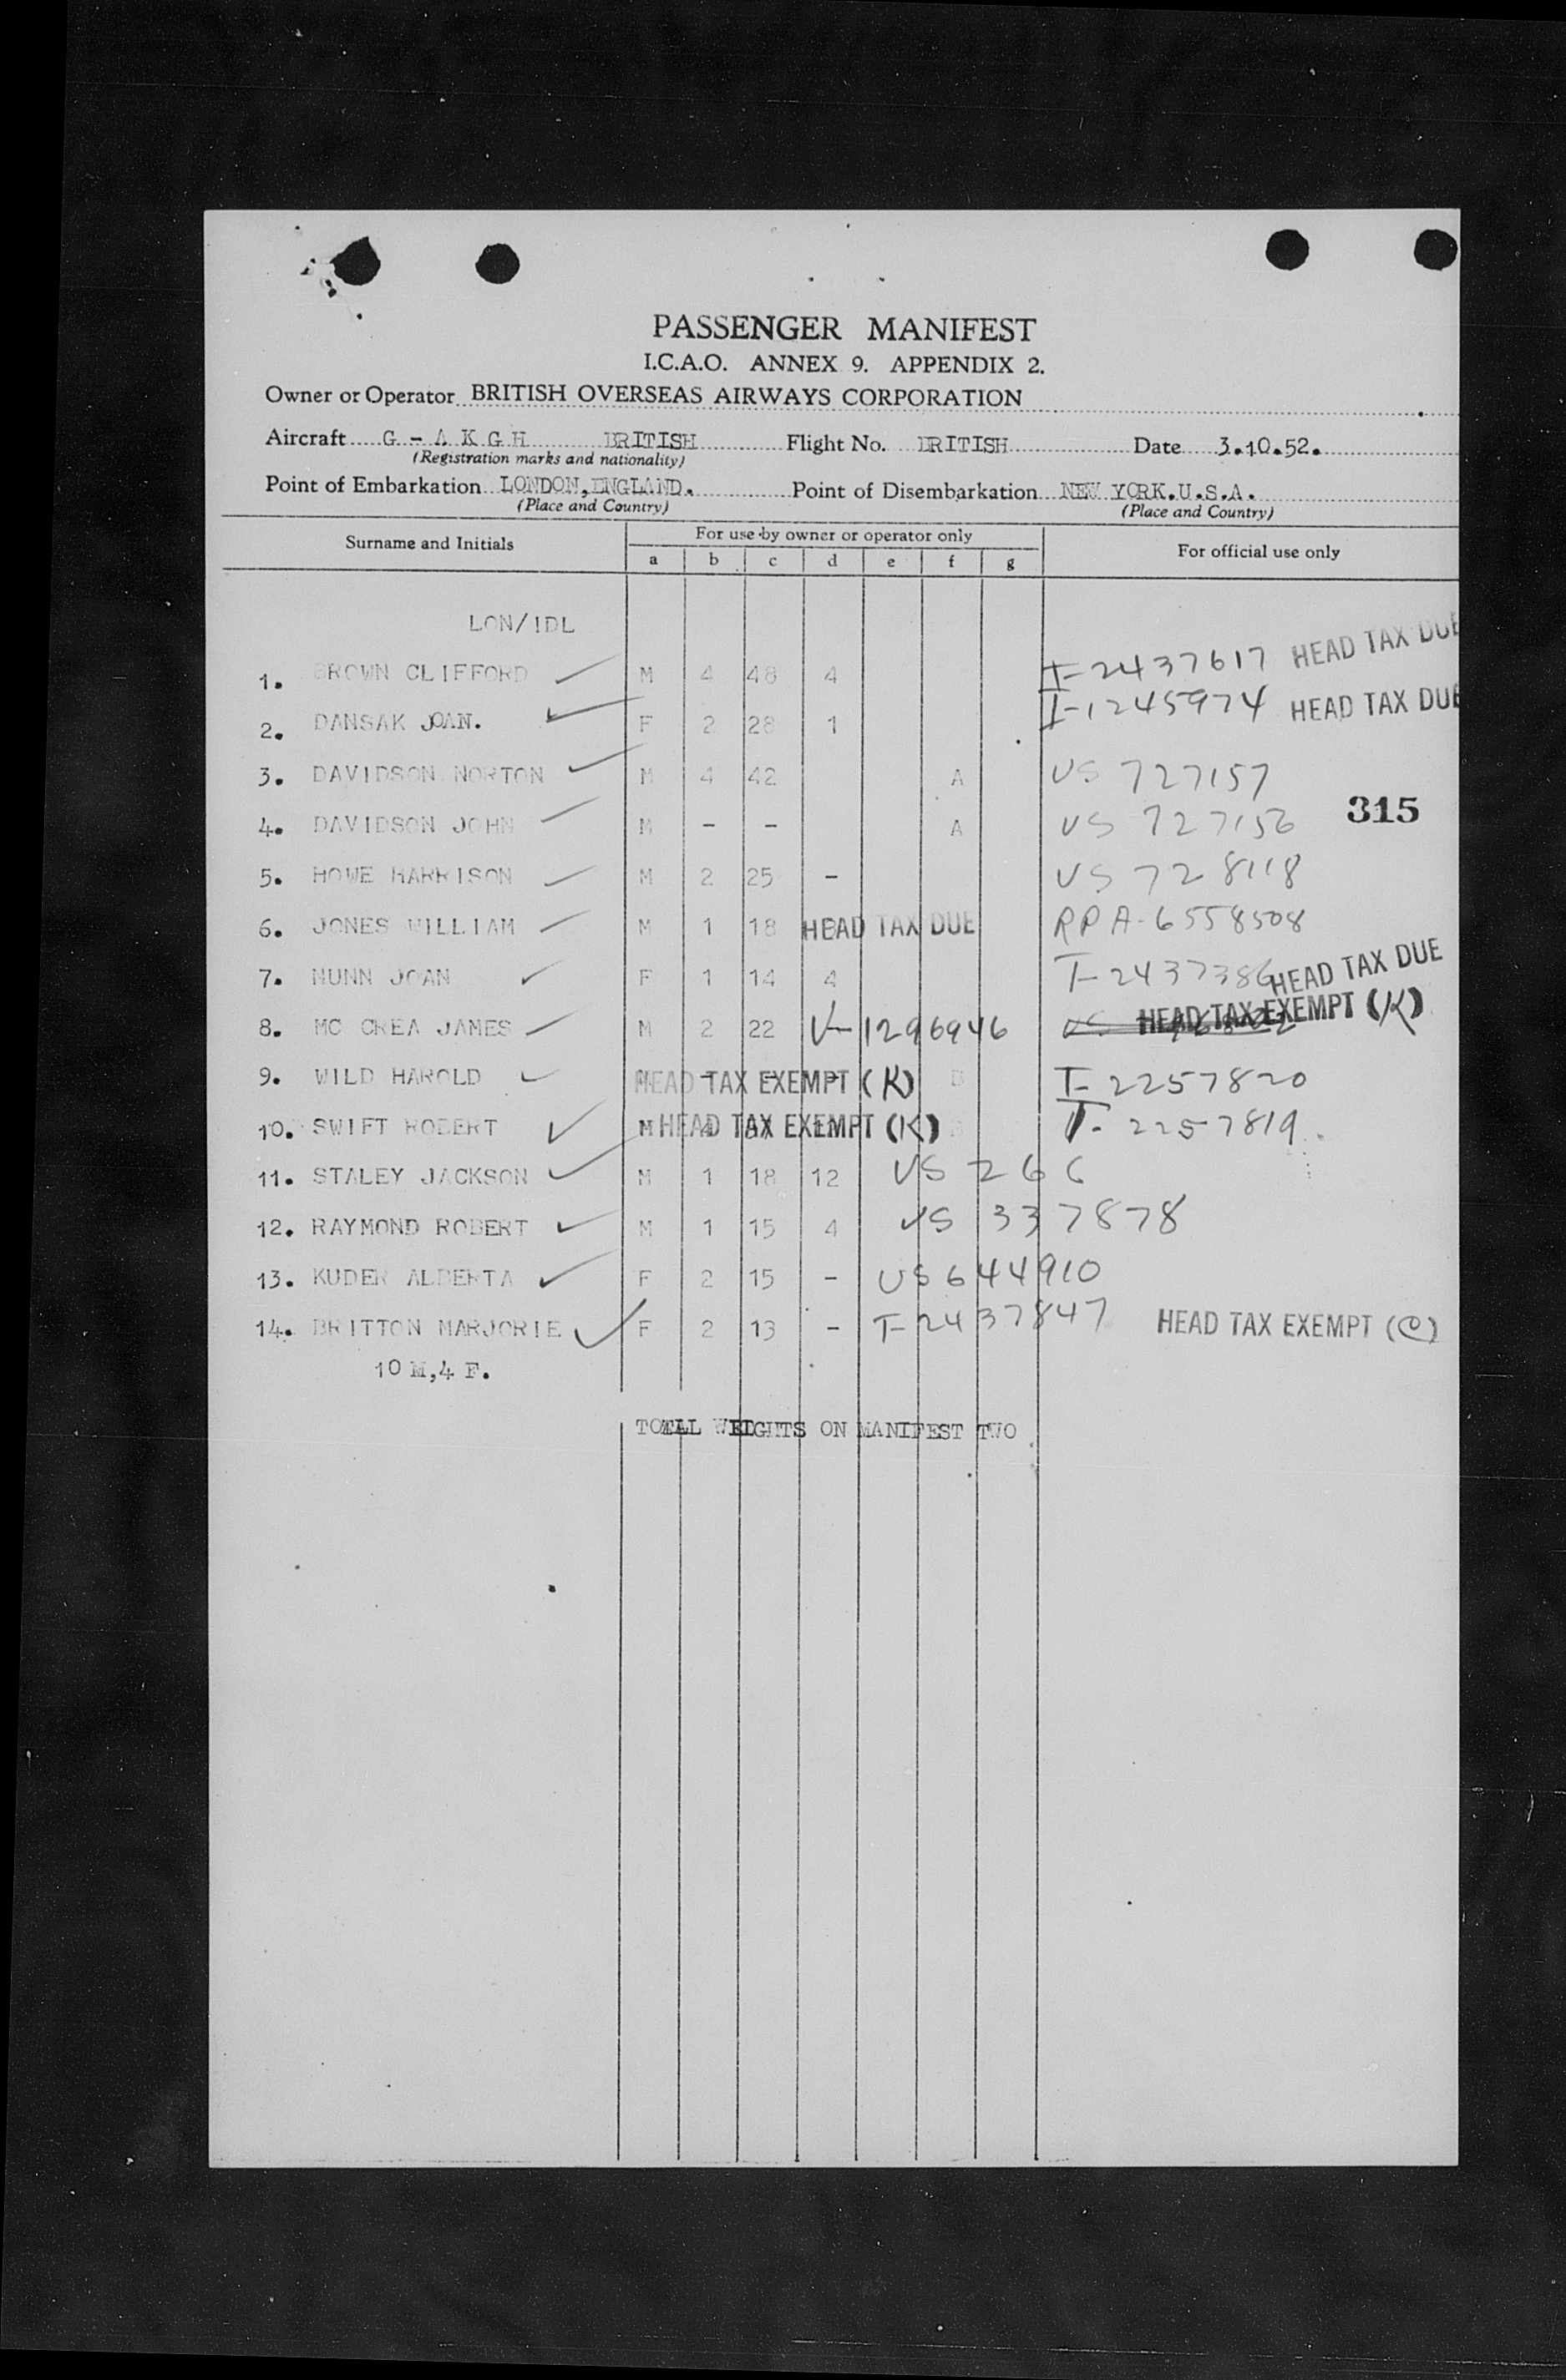 PASSENGER MANIFEST
I.C.A.O. ANNEX 9. APPENDIX 2.
Owner or Operator BRITISH OVERSEAS AIRWAYS CORPORATION
Aircraft G - A K G H BRITISH Flight No. BRITISH Date 3.10.52.
(Registration marks and nationality)
Point of Embarkation LONDON, ENGLAND. Point of Disembarkation NEW YORK.U.S.A.
(Place and Country) (Place and Country)
Surname and Initials For use by owner or operator only For official use only
a b c d e f g
LON/IDL
1. BROWN CLIFFORD M 4 48 4 T-2437617 HEAD TAX DUE
2. DANSAK JOAN. F 2 28 1 I-1245974 HEAD TAX DUE
3. DAVIDSON NORTON M 4 42 A US 727157
315
4. DAVIDSON JOHN M - - A US 727156
5. HOWE HARRISON M 2 25 - US 728118
6. JONES WILLIAM M 1 18 HEAD TAX DUE RPA-6558508
7. NUNN JOAN F 1 14 4 T-2437386 HEAD TAX DUE
8. MC CREA JAMES M 2 22 V-1296946 US HEAD TAX EXEMPT (K)
9. WILD HAROLD HEAD TAX EXEMPT (K) T-2257820
10. SWIFT ROBERT M HEAD TAX EXEMPT (K) T-2257819
11. STALEY JACKSON M 1 18 12 US 266
12. RAYMOND ROBERT M 1 15 4 US 337878
13. KUDER ALBERTA F 2 15 - US 644910
14. BRITTON MARJORIE F 2 13 - T-2437847 HEAD TAX EXEMPT (C)
10 M,4 F.
TOTAL WEIGHTS ON MANIFEST TWO